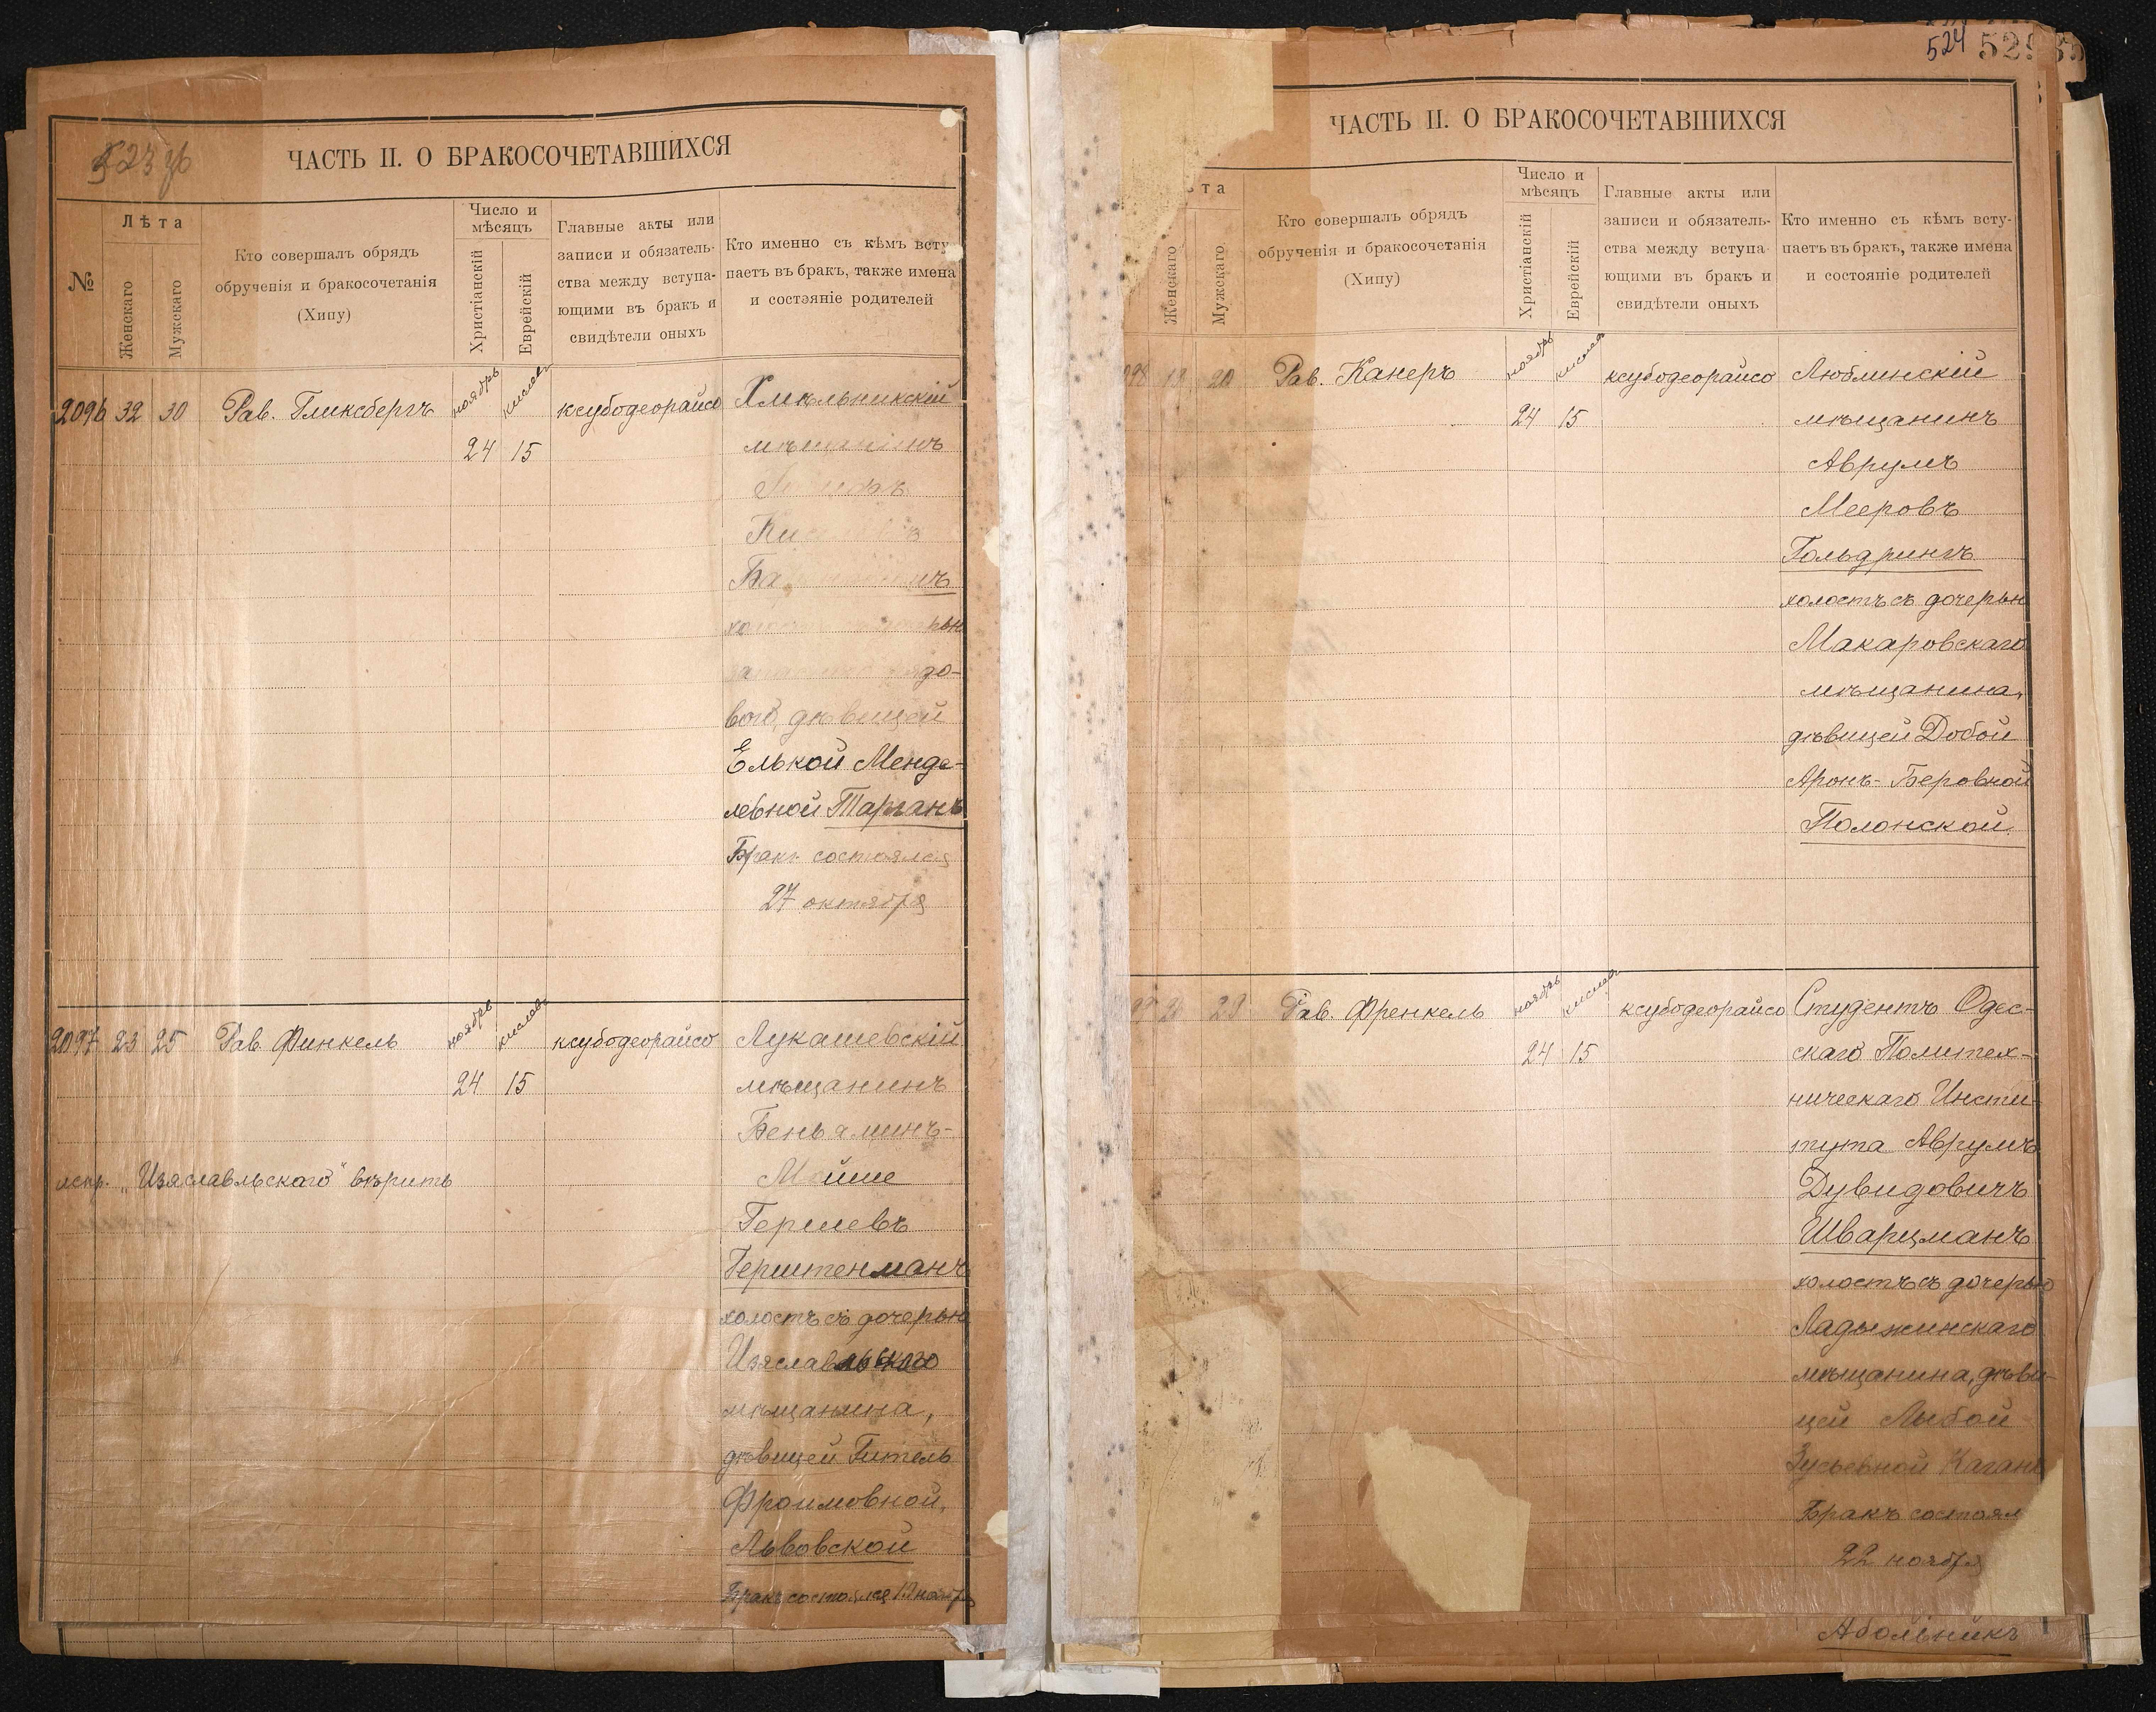 523 об
ЧАСТЬ II. О БРАКОСОЧЕТАВШИХСЯ
№
Лѣта
Женскаго
Мужскаго
Кто совершалъ обрядъ
обрученія и бракосочетанія
(Хипу)
Число и
мѣсяцъ
Христіанскій
Еврейскій
Главные акты или
записи и обязатель-
ства между вступа-
ющими въ бракъ и
свидѣтели оныхъ
Кто именно съ кѣмъ всту-
паетъ въ бракъ, также имена
и состояніе родителей
2096 32 30 Рав. Гликсбергъ ноябрь кислевъ ксубодеорайсо Хмѣльникскій
24 15 мѣщанинъ
холостъ дочерью
рядо-
вого, дѣвицей
Елькой Менде-
левной Тарганъ
Бракъ состоялся
27 октября
2097 23 25 Рав. Финкель ноябрь кислевъ ксубодеорайсо Лукашевскій
24 15 мѣщанинъ
Беньаминъ-
Мойше
испр. „Изяславльскаго" вѣрить
Гершевъ
Герштенманъ
холостъ съ дочерью
Изяславльскаго
мѣщанина,
дѣвицей Гитель
Фроимовной,
Львовской
Бракъ состоялся 19 ноября
524
ЧАСТЬ II. О БРАКОСОЧЕТАВШИХСЯ
та
Женскаго
Мужскаго
Кто совершалъ обрядъ
обрученія и бракосочетанія
(Хипу)
Число и
мѣсяцъ
Христіанскій
Еврейскій
Главные акты или
записи и обязатель-
ства между вступа-
ющими въ бракъ и
свидѣтели оныхъ
Кто именно съ кѣмъ всту-
паетъ въ бракъ, также имена
и состояніе родителей
98 19 20 Рав. Канеръ ноябрь кислевъ ксубодеорайсо Люблинскій
24 15 мѣщанинъ
Аврумъ
Мееровъ
Гольдрингъ
холостъ съ дочерью
Макаровскаго
мѣщанина,
дѣвицей Добой
Аронъ-Беровной
Полонской.
Рав. Френкель ноябрь кислевъ ксубодеорайсо Студентъ Одес-
24 15 скаго Политех-
ническаго Инсти-
тута Аврумъ
Дувидовичъ
Шварцманъ
холостъ съ дочерью
Ладыжинскаго
мѣщанина, дѣви-
цей Либой
Зусьевной Каганъ
Бракъ состоял
22 ноября
Абольникъ